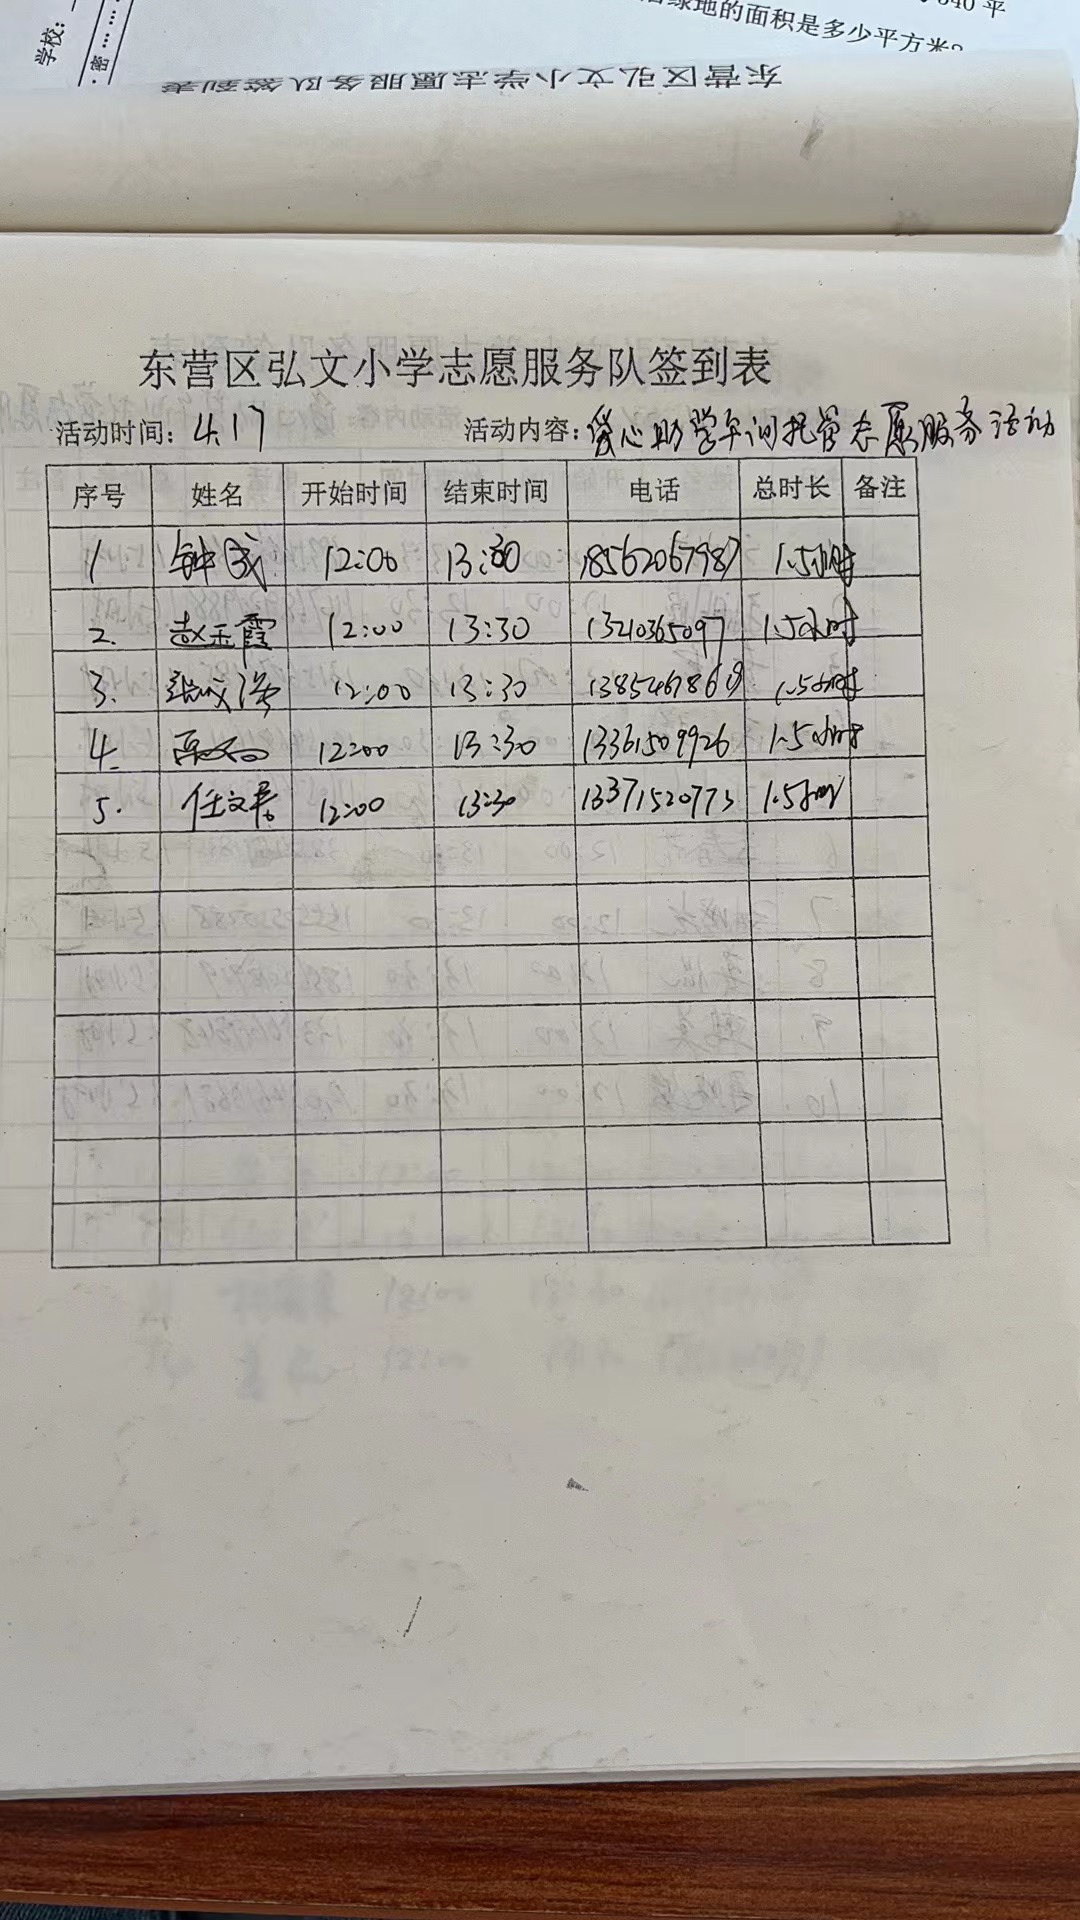 学校:
密
40 平
绿地的面积是多少平方米?
东营区弘文小学志愿服务队签到表
东营区弘文小学志愿服务队签到表
活动时间: 4.17 活动内容: 爱心助学午间托管志愿服务活动
序号 姓名 开始时间 结束时间 电话 总时长 备注
1 钟 12:00 13:30 18562067987 1.5小时
2. 赵玉霞 12:00 13:30 13210365097 1.5小时
3. 12:00 13:30 13854678 1.5小时
4. 12:00 13:30 13361509926 1.5小时
5. 任文 12:00 13:30 13371520773 1.5小时